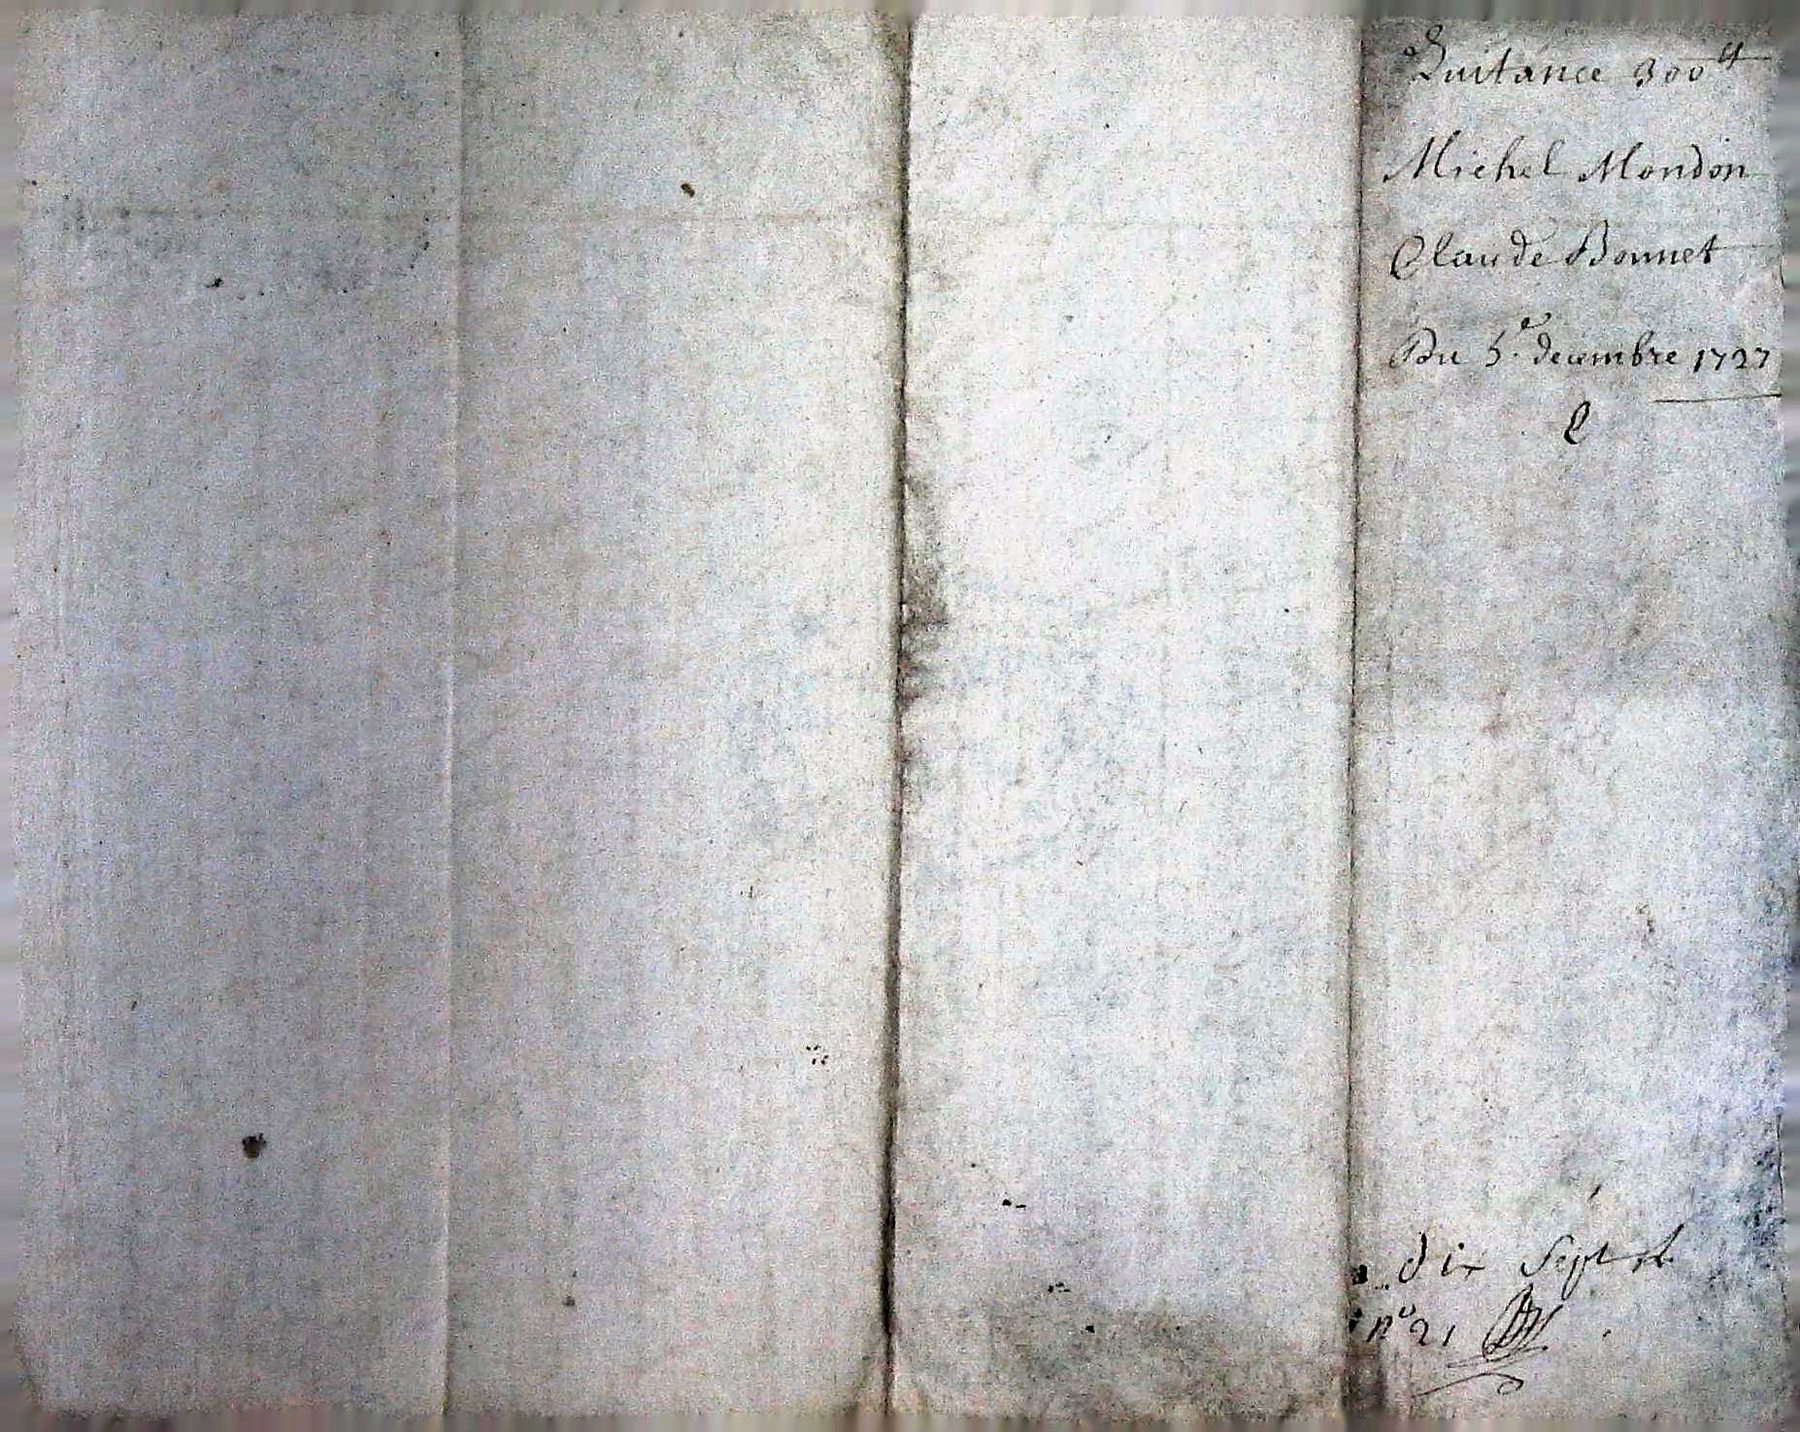 Quitance 300 ₶
Michel Mondon
Claude Bonnet
Du 5e. decembre 1727
dix sept
no 21